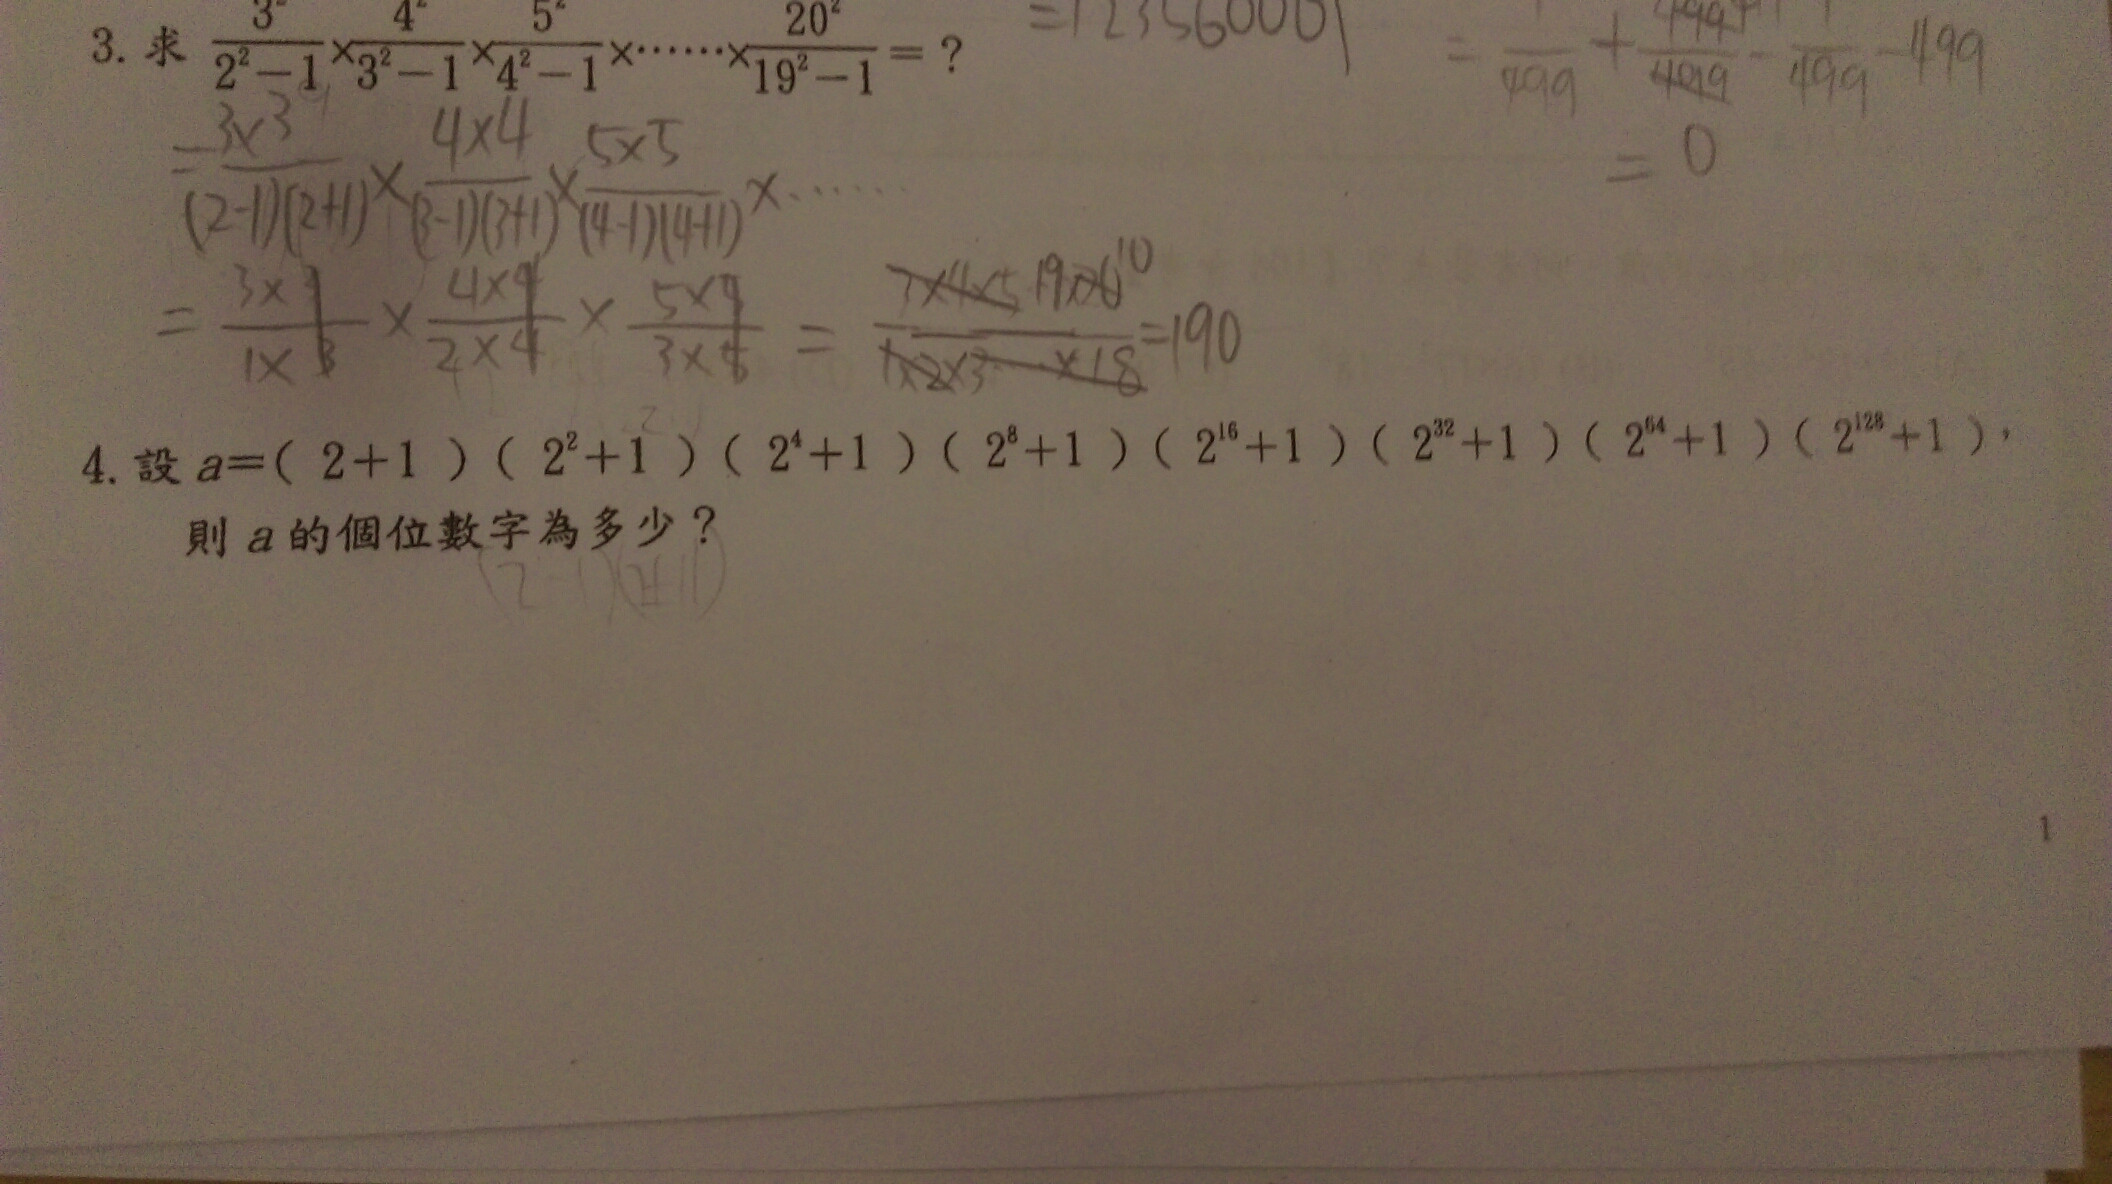 3. 求 3²/(2²−1) × 4²/(3²−1) × 5²/(4²−1) ×⋯⋯× 20²/(19²−1) = ?
=123560001
499
= 0
= 3×3/(2-1)(2+1) × 4×4/(3-1)(3+1) × 5×5/(4-1)(4+1) × ......
= 3×3/1×3 × 4×4/2×4 × 5×5/3×5 = 3×4×5 19×20 10/1×2×3 ×18 =190
4. 設 a=( 2+1 )( 2²+1 )( 2⁴+1 )( 2⁸+1 )( 2¹⁶+1 )( 2³²+1 )( 2⁶⁴+1 )( 2¹²⁸+1 )，
則 a 的個位數字為多少？
(2-1)(2+1)
1